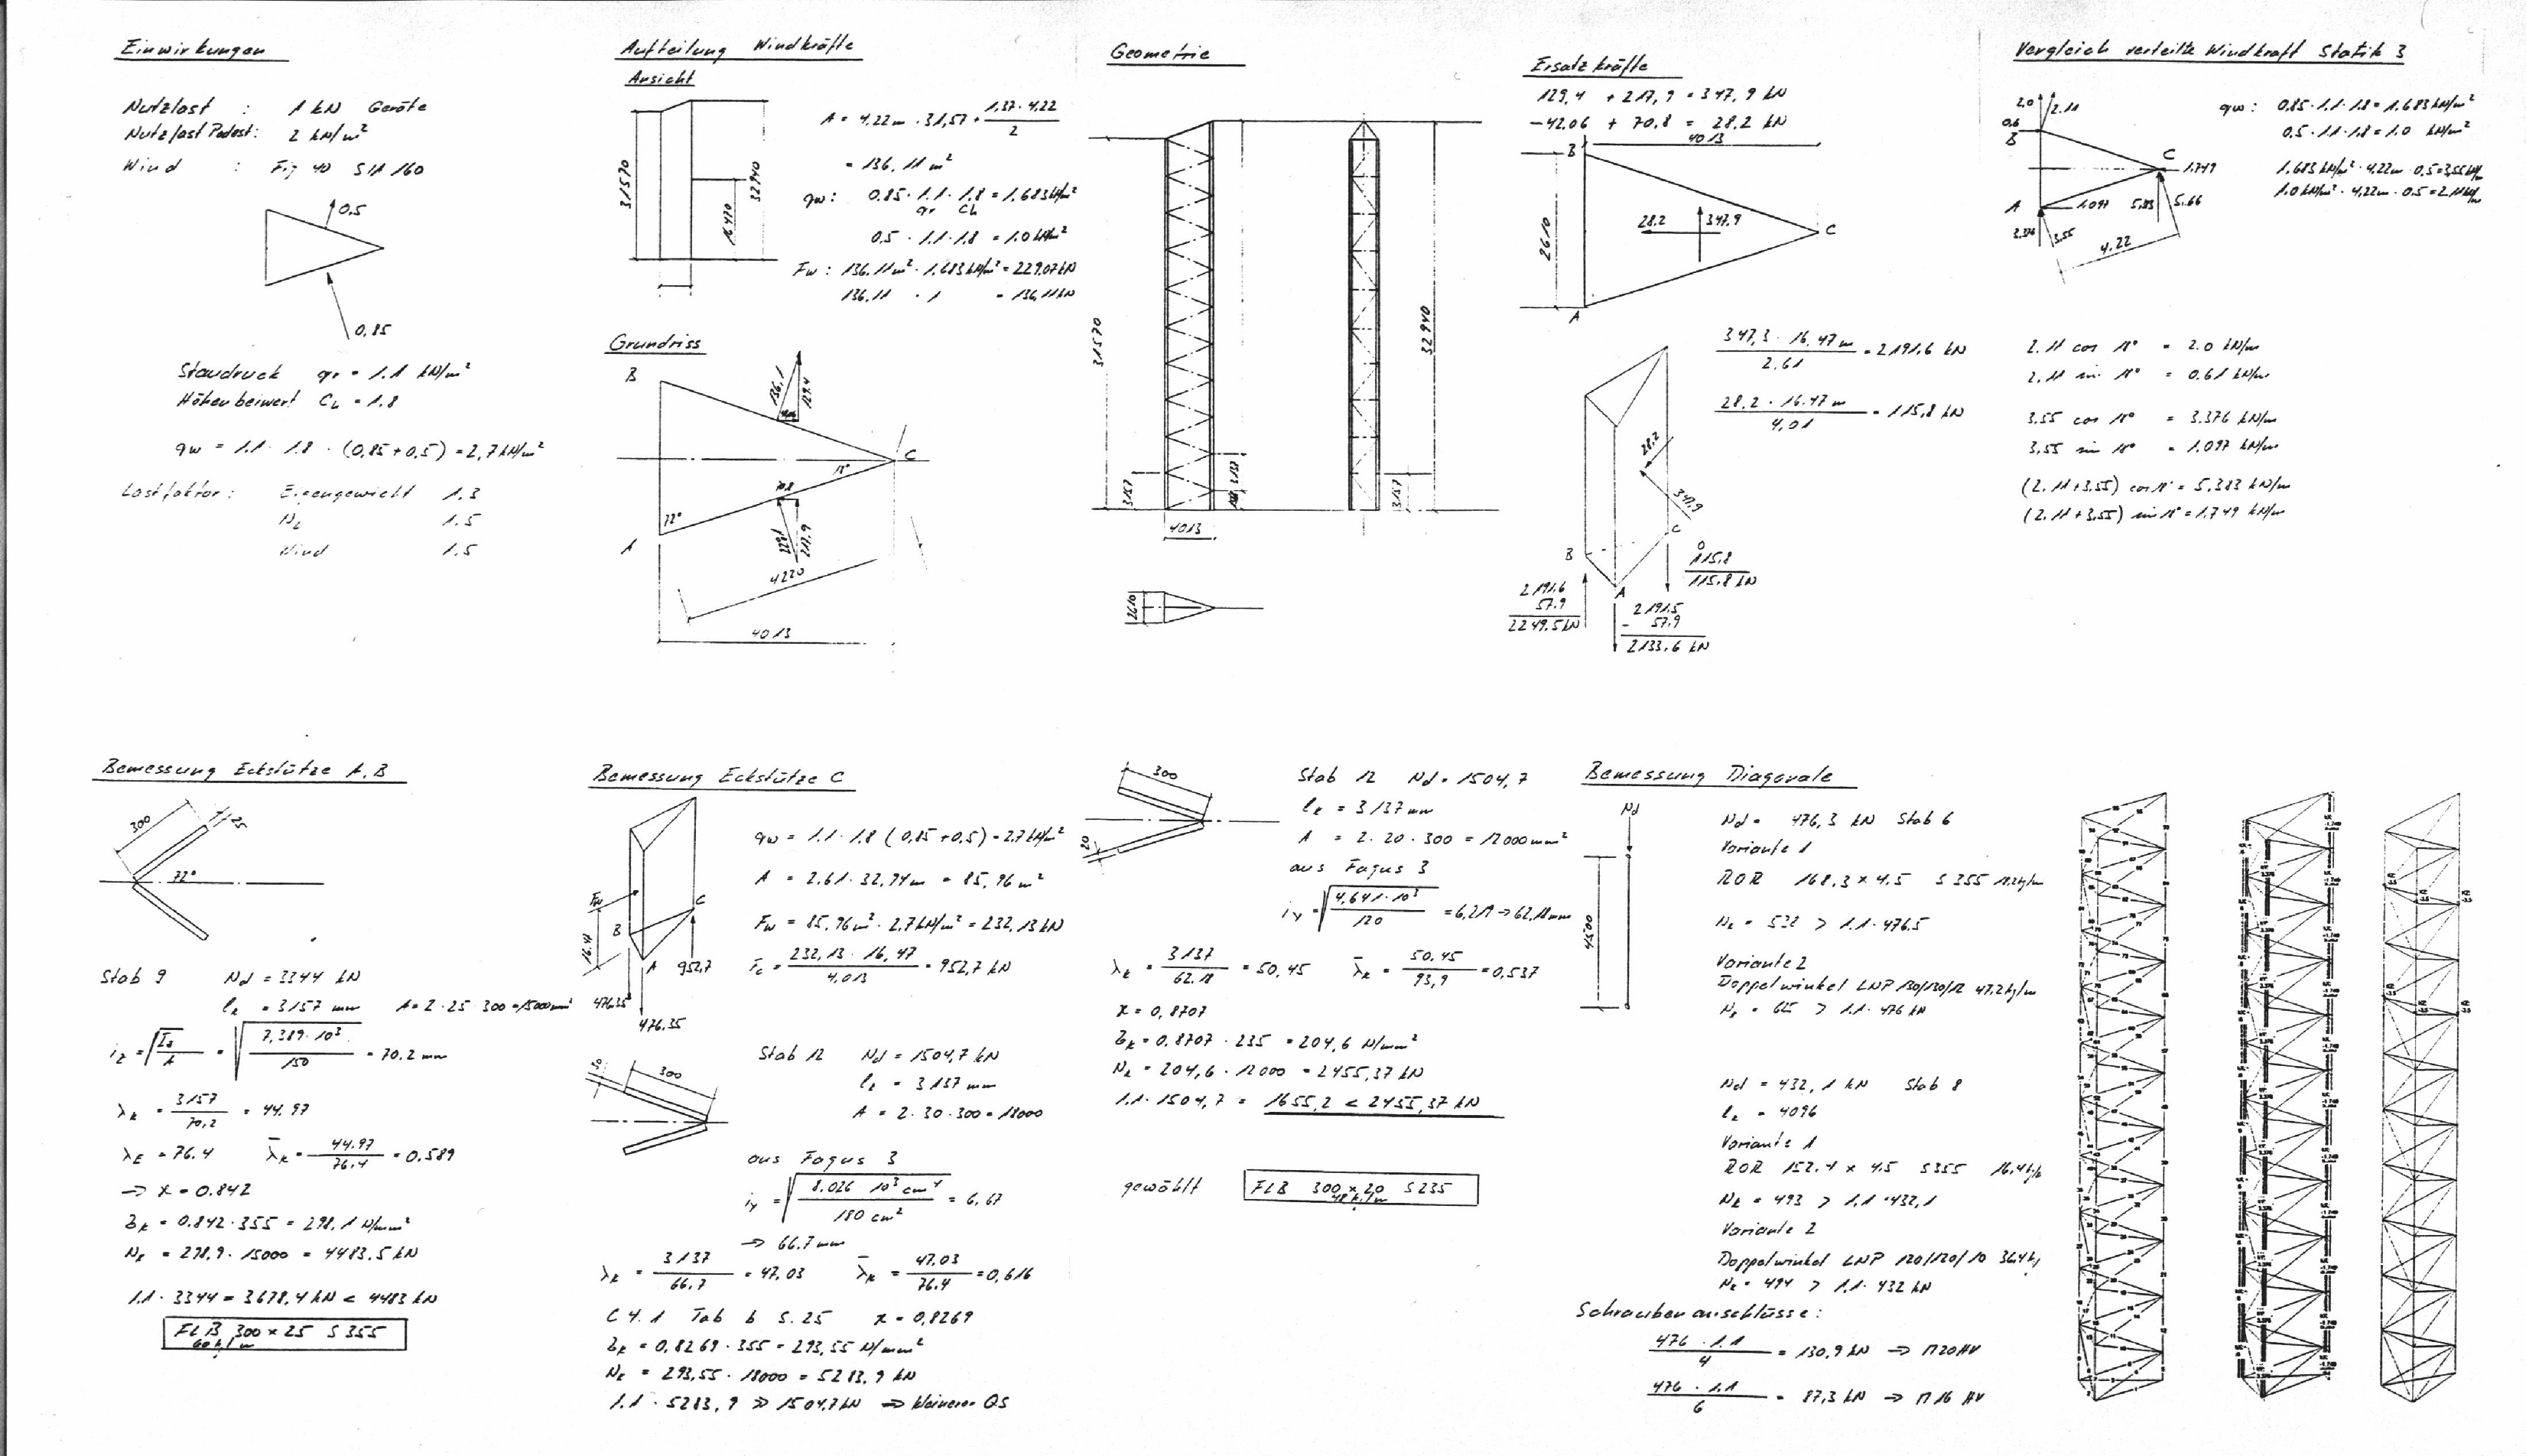 Einwirkungen
Nutzlast : 1 kN Geräte
Nutzlast Podest: 2 kN/m²
Wind : Fig 40 SIA 160
0,5
0,85
Staudruck qr = 1.1 kN/m²
Höhenbeiwert Ch = 1,8
qw = 1.1 · 1.8 · (0,85 + 0,5) = 2,7 kN/m²
Lastfaktor: Eigengewicht 1.3
NL 1.5
Wind 1.5
Aufteilung Windkräfte
Ansicht
31570
16470
32940
A = 4.22m · 31,57 + 1,37 · 4,22 / 2
= 136,11 m²
qw: 0.85 · 1.1 · 1.8 = 1,683 kN/m²
qr Ch
0.5 · 1.1 · 1.8 = 1.0 kN/m²
Fw: 136.11m² · 1,683 kN/m² = 229,07 kN
136,11 · 1 = 136,11 kN
Grundriss
B
136,1
129.4
C
18°
70,8
72°
A
229,1
217,9
4220
4013
Geometrie
31570
32940
3157
3137
3157
4013
2610
Ersatzkräfte
129,4 + 217,9 = 347,9 kN
-42.06 + 70,8 = 28.2 kN
4013
B
2610
28.2
347.9
C
A
347,3 · 16,47 m / 2,61 = 2191,6 kN
28,2 · 16.47 m / 4,01 = 115,8 kN
28,2
347,9
C
B
A
0
115,8
115,8 kN
2191,6
57.9
2249.5 kN
2191,5
- 57,9
2133,6 kN
Vergleich verteilte Windkraft Statik 3
2,0
2.11
0,6
B
C
1,749
A
1.097
5,83
5,66
3.376
3,55
4.22
qw: 0,85 · 1.1 · 1.8 = 1.683 kN/m²
0.5 · 1.1 · 1.8 = 1.0 kN/m²
1,683 kN/m² · 4,22m · 0.5 = 3,55 kN/m
1.0 kN/m² · 4,22m · 0.5 = 2,11 kN/m
2.11 cos 18° = 2.0 kN/m
2,11 sin 18° = 0.61 kN/m
3,55 cos 18° = 3.376 kN/m
3,55 sin 18° = 1.097 kN/m
(2.11 + 3,55) cos 18° = 5,383 kN/m
(2.11 + 3,55) sin 18° = 1.749 kN/m
Bemessung Eckstütze A,B
300
25
72°
Stab 9 Nd = 3344 kN
lk = 3157 mm A = 2 · 25 · 300 = 15000 mm²
iz = √(Iz / A) = √(7,389 · 10³ / 150) = 70.2 mm
λk = 3157 / 70,2 = 44.97
λE = 76.4 λ̄k = 44.97 / 76.4 = 0.589
→ χ = 0.842
σk = 0.842 · 355 = 298,1 N/mm²
Nk = 298,9 · 15000 = 4483.5 kN
1.1 · 3344 = 3678,4 kN < 4483 kN
FLB 300 × 25 S 355
60 kg/m
Bemessung Eckstütze C
Fw
16.47
B
C
A
952,7
476,35
476,35
qw = 1.1 · 1.8 (0,85 + 0,5) = 2.7 kN/m²
A = 2.61 · 32,94m = 85,96 m²
Fw = 85,96m² · 2,7 kN/m² = 232,13 kN
Fc = 232,13 · 16,47 / 4,013 = 952,7 kN
300
Stab 12 Nd = 1504,7 kN
lk = 3137 mm
A = 2 · 30 · 300 = 18000
aus Fagus 3
iy = √(8.026 10³ cm⁴ / 180 cm²) = 6,67
→ 66.7 mm
λk = 3137 / 66.7 = 47,03 λ̄k = 47,03 / 76.4 = 0,616
C 4.1 Tab 6 S.25 χ = 0,8269
σk = 0,8269 · 355 = 293,55 N/mm²
Nk = 293,55 · 18000 = 5283,9 kN
1.1 · 5283,9 ≫ 1504,7 kN → kleinerer QS
300
20
Stab 12 Nd = 1504,7
lk = 3137 mm
A = 2 · 20 · 300 = 12000 mm²
aus Fagus 3
iy = √(4,641 · 10³ / 120) = 6,219 → 62,18 mm
λk = 3137 / 62.18 = 50,45 λ̄k = 50.45 / 93,9 = 0,537
χ = 0,8707
σk = 0,8707 · 235 = 204,6 N/mm²
Nk = 204,6 · 12000 = 2455,37 kN
1.1 · 1504,7 = 1655,2 < 2455,37 kN
gewählt FLB 300 × 20 S 235
48 kg/m
Bemessung Diagonale
Nd
4500
Nd = 476,3 kN Stab 6
Variante 1
ROR 168,3 × 4.5 S 355
Nk = 532 > 1.1 · 476.5
Variante 2
Doppelwinkel LNP 130/130/12 47.2 kg/m
Nk = 625 > 1.1 · 476 kN
Nd = 432,1 kN Stab 8
lk = 4096
Variante 1
ROR 152.4 × 4,5 S355
Nk = 493 > 1,1 · 432,1
Variante 2
Doppelwinkel LNP 120/120/10
Nk = 494 > 1.1 · 432 kN
Schraubenanschlüsse:
476 · 1.1 / 4 = 130,9 kN → M20 HV
476 · 1.1 / 6 = 87,3 kN → M16 HV